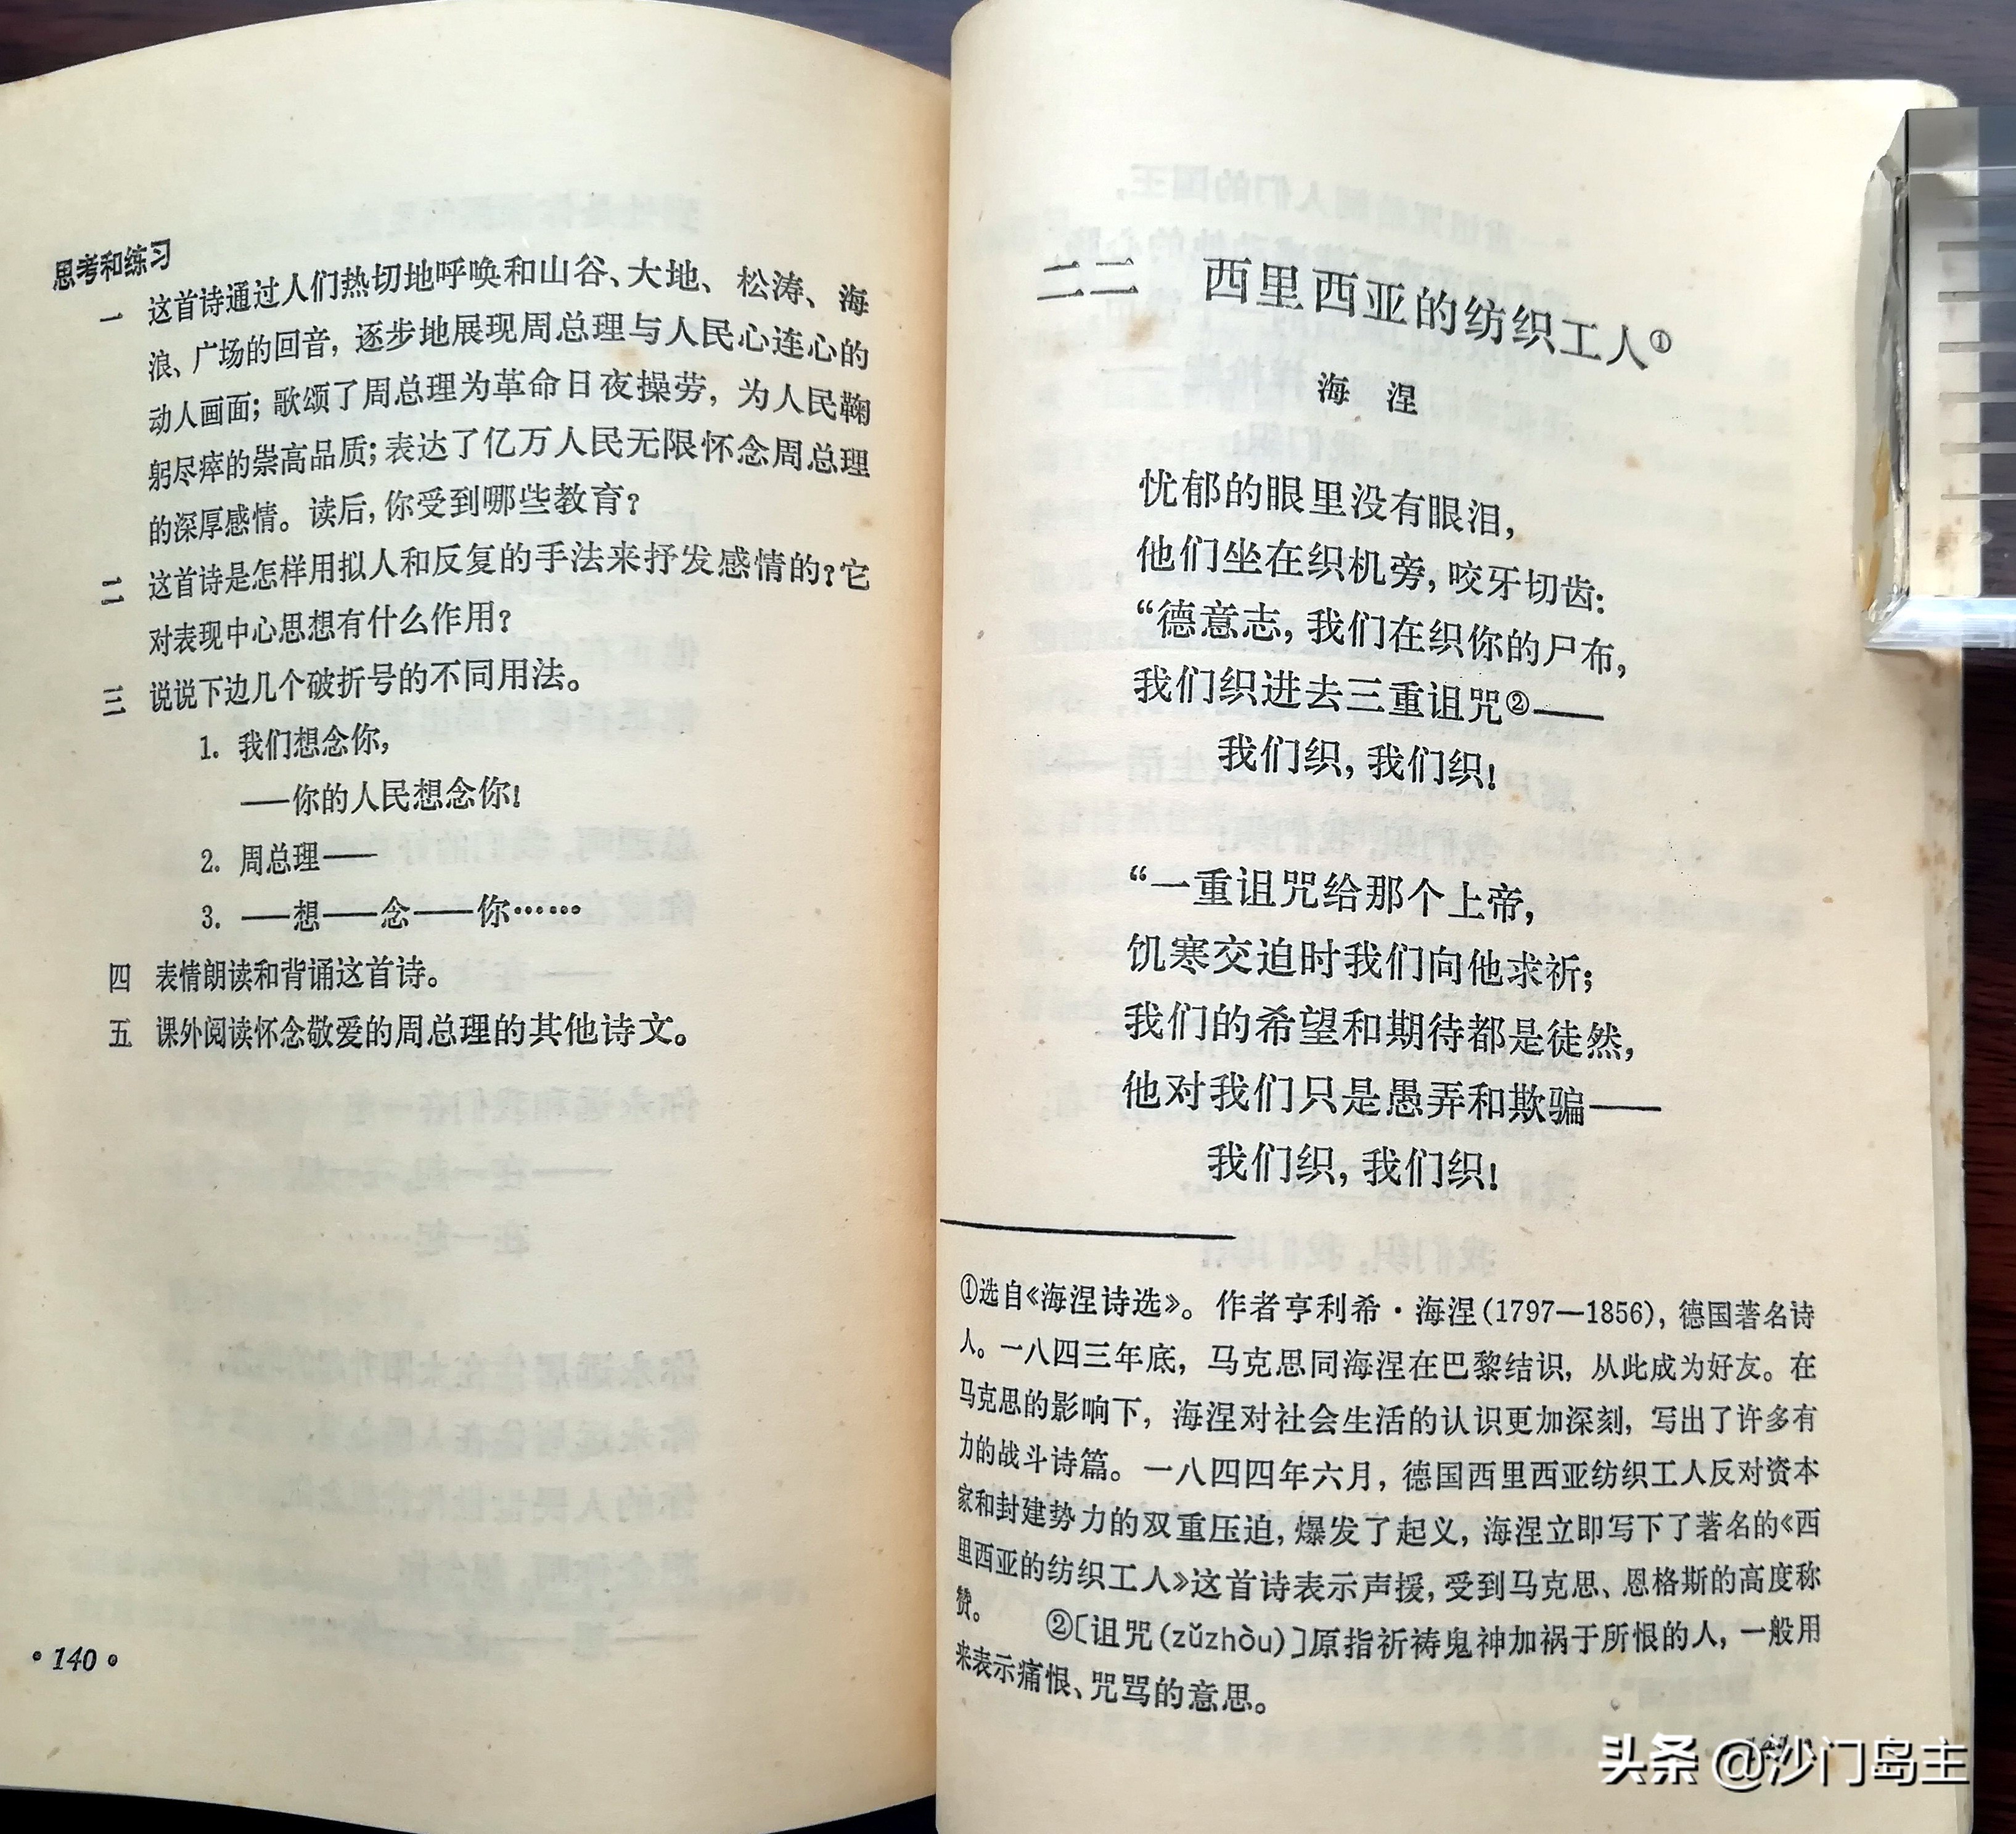 思考和练习
一 这首诗通过人们热切地呼唤和山谷、大地、松涛、海
浪、广场的回音，逐步地展现周总理与人民心连心的
动人画面；歌颂了周总理为革命日夜操劳，为人民鞠
躬尽瘁的崇高品质；表达了亿万人民无限怀念周总理
的深厚感情。读后，你受到哪些教育？
二 这首诗是怎样用拟人和反复的手法来抒发感情的？它
对表现中心思想有什么作用？
三 说说下边几个破折号的不同用法。
1. 我们想念你，
——你的人民想念你！
2. 周总理——
3. ——想——念——你……
四 表情朗读和背诵这首诗。
五 课外阅读怀念敬爱的周总理的其他诗文。
·140·
二二 西里西亚的纺织工人①
海涅
忧郁的眼里没有眼泪，
他们坐在织机旁，咬牙切齿：
“德意志，我们在织你的尸布，
我们织进去三重诅咒②——
我们织，我们织！
“一重诅咒给那个上帝，
饥寒交迫时我们向他求祈；
我们的希望和期待都是徒然，
他对我们只是愚弄和欺骗——
我们织，我们织！
①选自《海涅诗选》。作者亨利希·海涅(1797—1856)，德国著名诗
人。一八四三年底，马克思同海涅在巴黎结识，从此成为好友。在
马克思的影响下，海涅对社会生活的认识更加深刻，写出了许多有
力的战斗诗篇。一八四四年六月，德国西里西亚纺织工人反对资本
家和封建势力的双重压迫，爆发了起义，海涅立即写下了著名的《西
里西亚的纺织工人》这首诗表示声援，受到马克思、恩格斯的高度称
赞。 ②〔诅咒(zǔzhòu)〕原指祈祷鬼神加祸于所恨的人，一般用
来表示痛恨、咒骂的意思。
头条 @沙门岛主